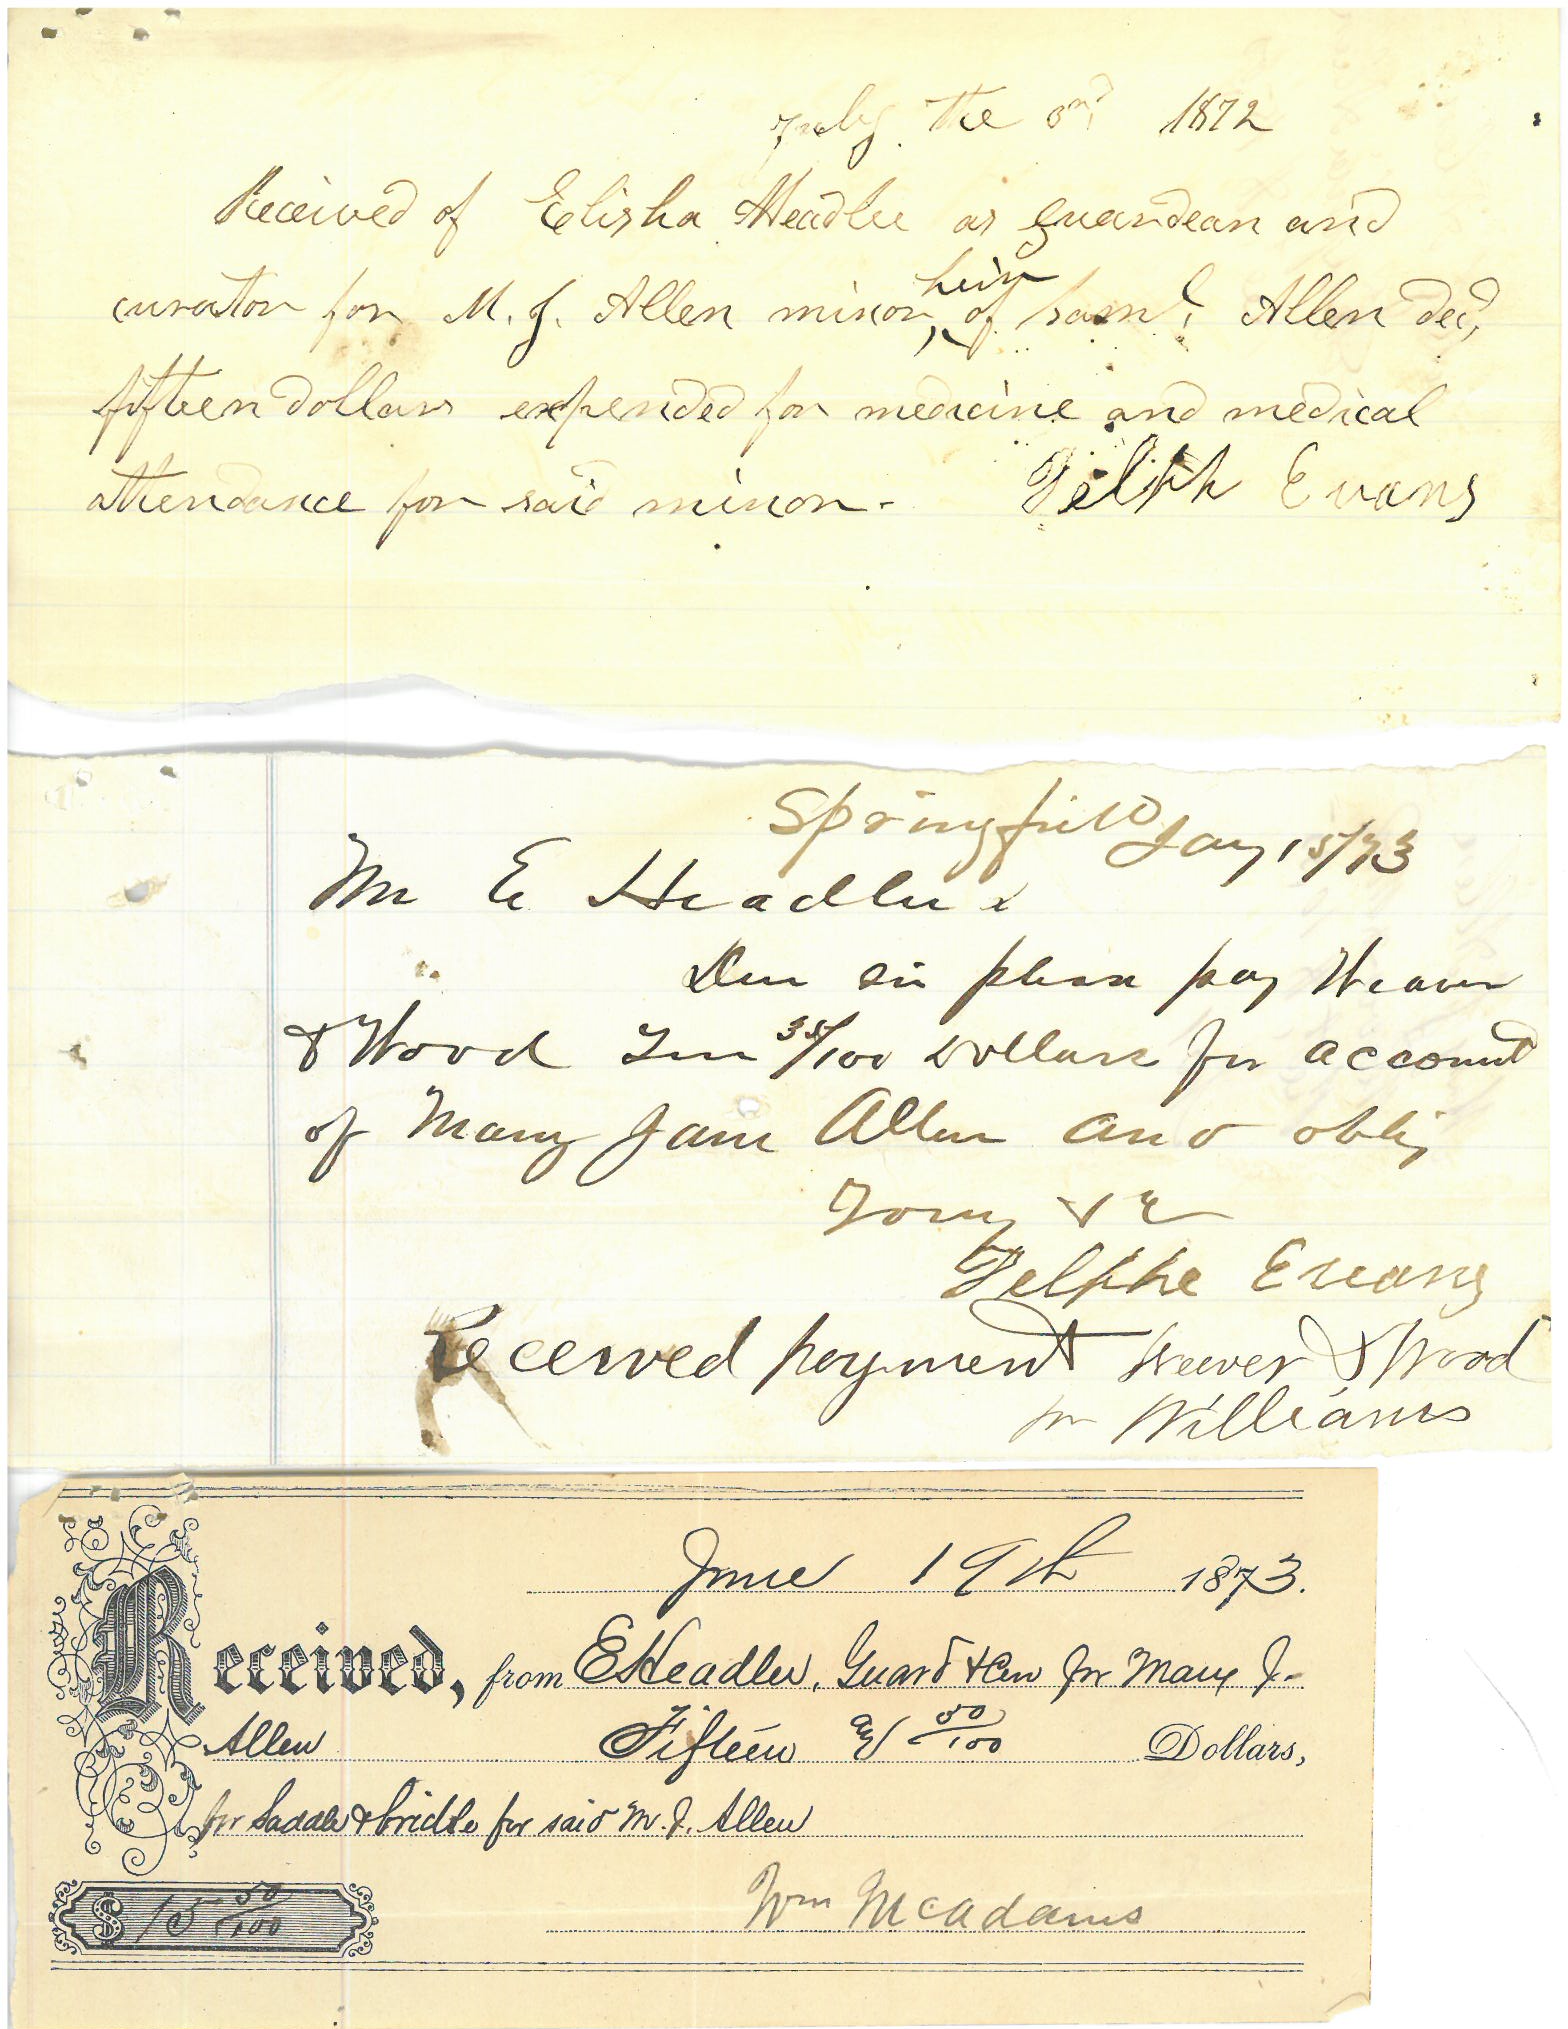 July the 3rd 1872
Received of Elisha Headlee as guardean and
heir
curator for M. J. Allen minor, of Saml. Allen decd,
fifteen dollars expended for medicine and medical
attendance for said minor. Delph Evans
Springfield Jany 15/73
Mr E Headlee
Dear sir please pay Weaver
& Wood Ten 35/100 Dollars for account
of Mary Jane Allen and oblig
Yours &c
Delphe Evans
Received payment Weever & Wood
pr Williams
June 19th 1873.
Received, from E Headlee, Guard & Cur for Mary J.
Allen Fifteen & 50/100 Dollars,
for Saddle & bridle for said M. J. Allen
Wm McAdams
$ 15 50/100